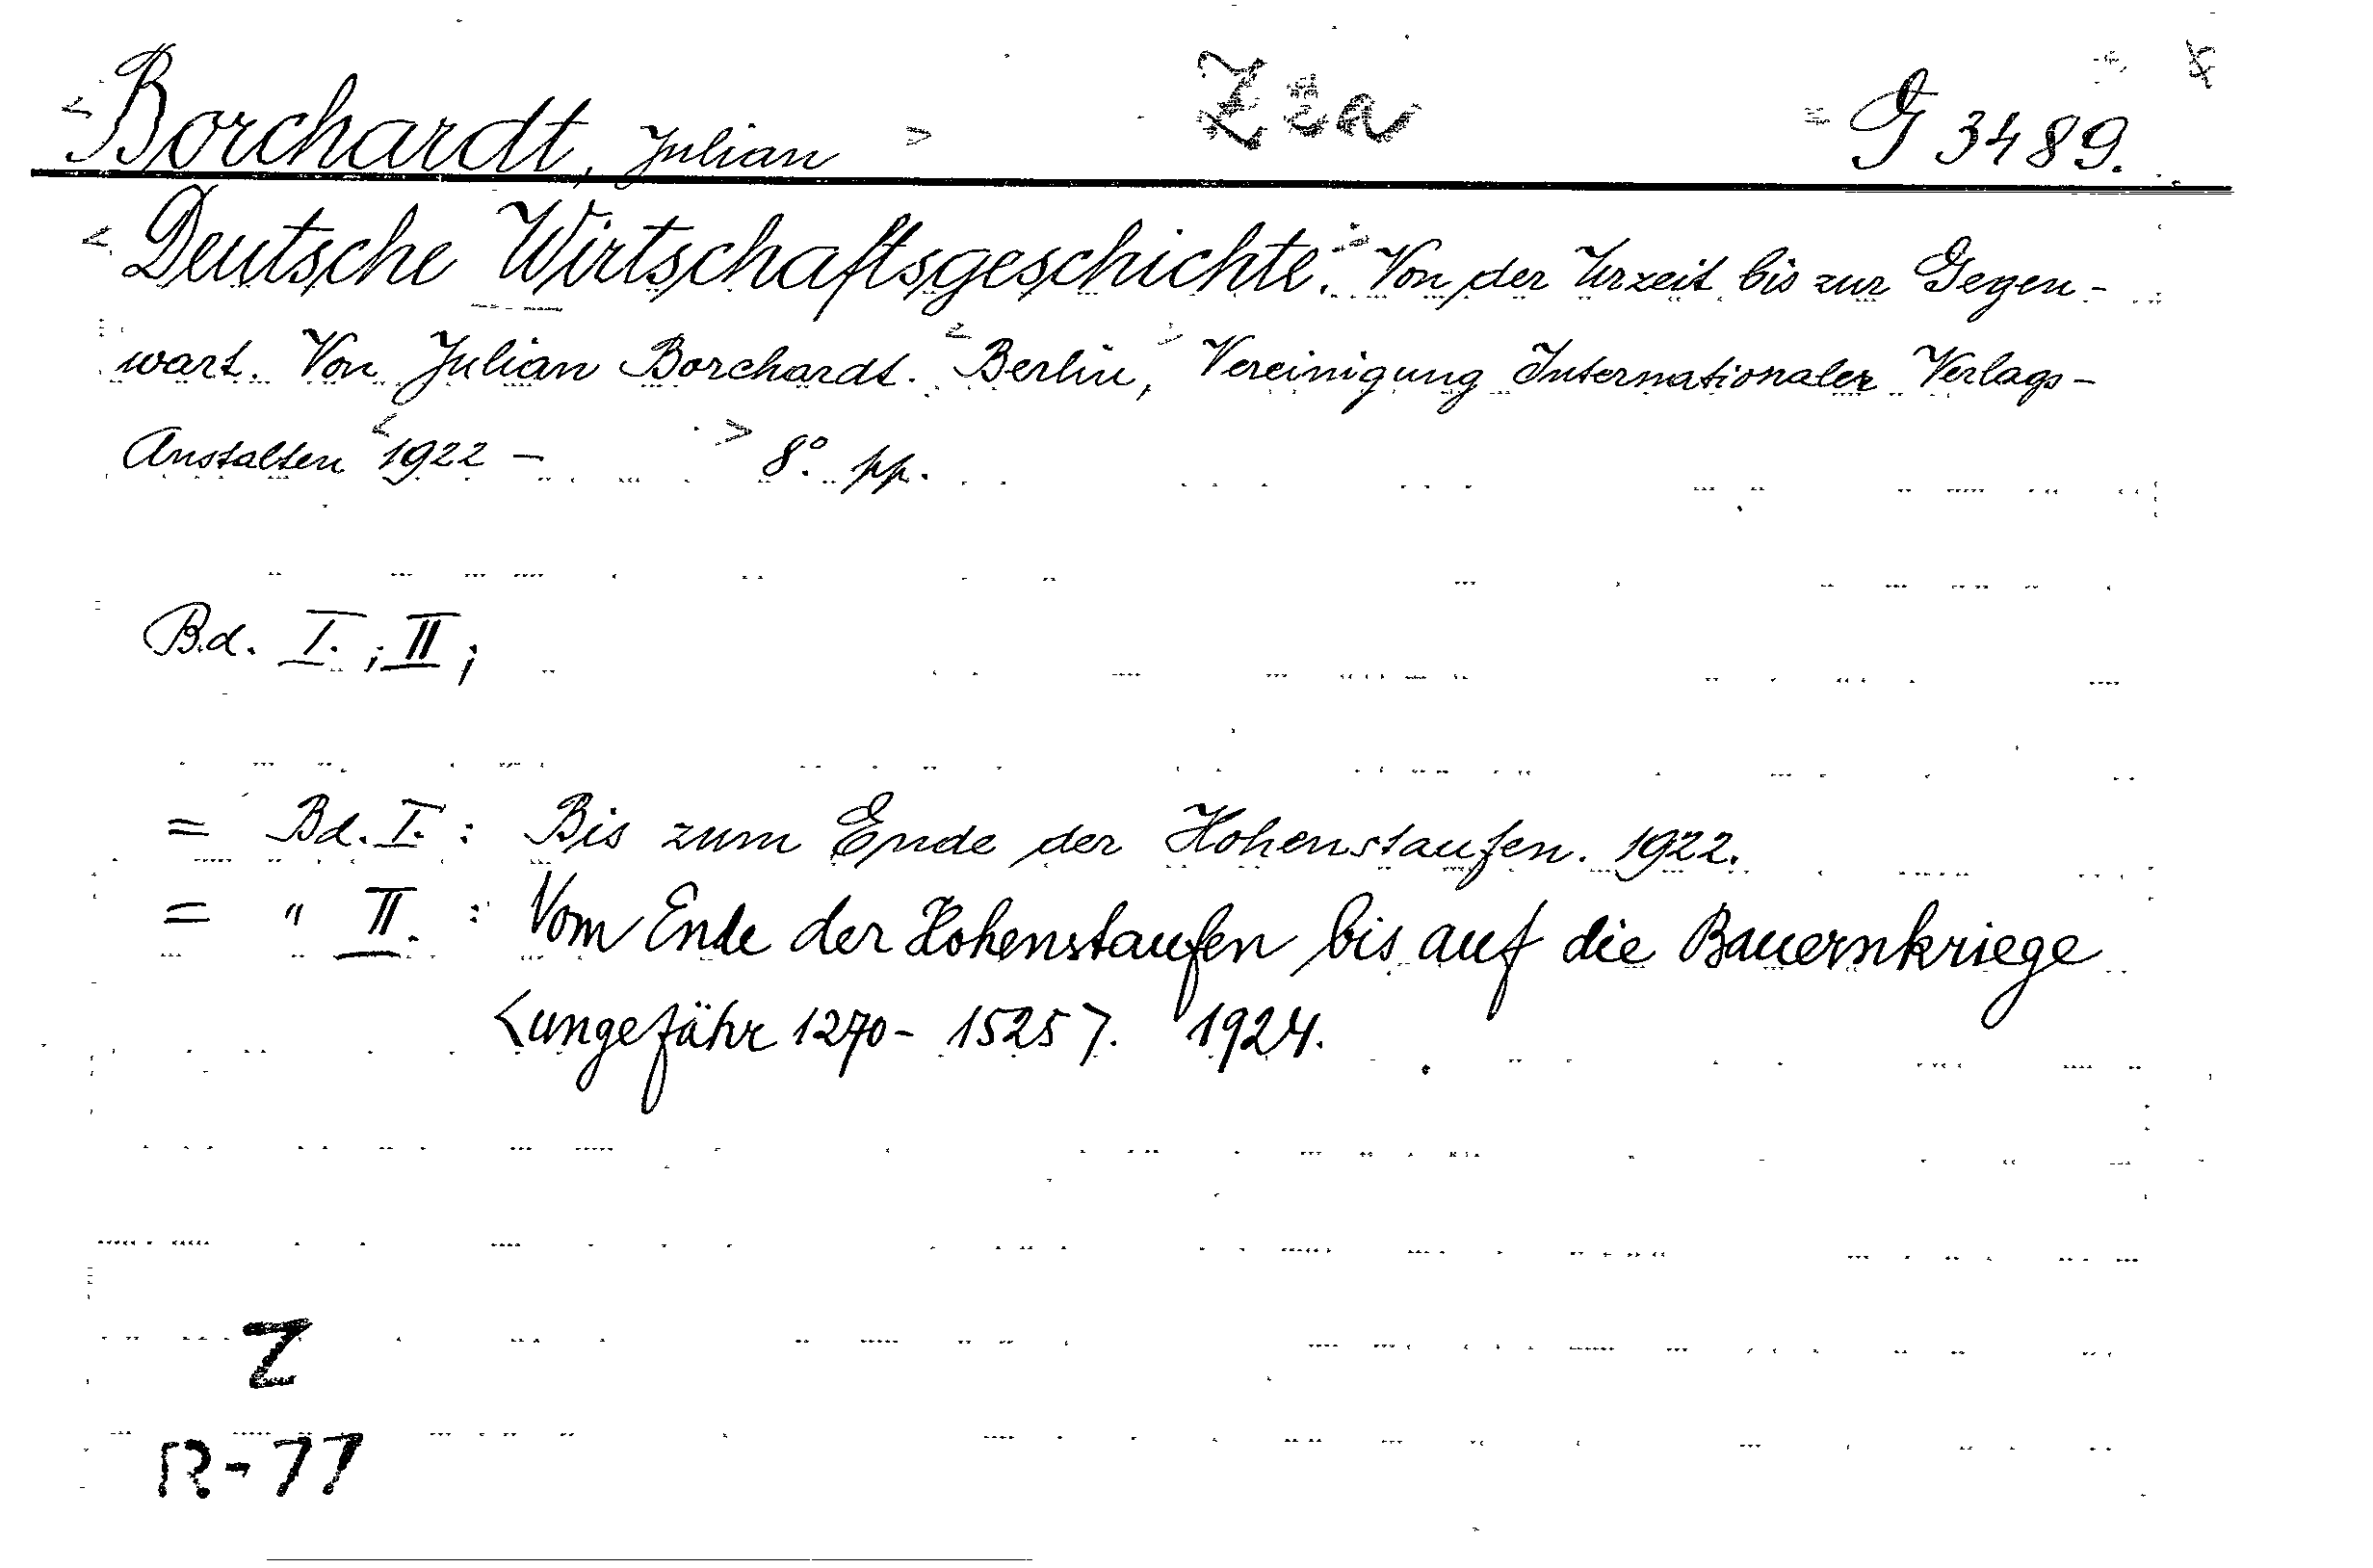 < Borchardt, Julian > Zza = G 3489.
< Deutsche Wirtschaftsgeschichte. Von der Urzeit bis zur Gegen-
wart. Von Julian Borchardt. < Berlin, > Vereinigung Internationaler Verlags-
Anstalten < 1922 - > 8°. pp.
Bd. I. ; II ;
= Bd. I. : Bis zum Ende der Hohenstaufen. 1922.
= " II. : Vom Ende der Hohenstaufen bis auf die Bauernkriege
<ungefähr 1270 - 1525>. 1924.
Z
R-77